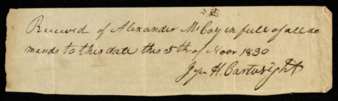 Received of Alexander McCoy in full of all de
mands to this date this 5th of Novr 1830
Jas. H. Cartwright